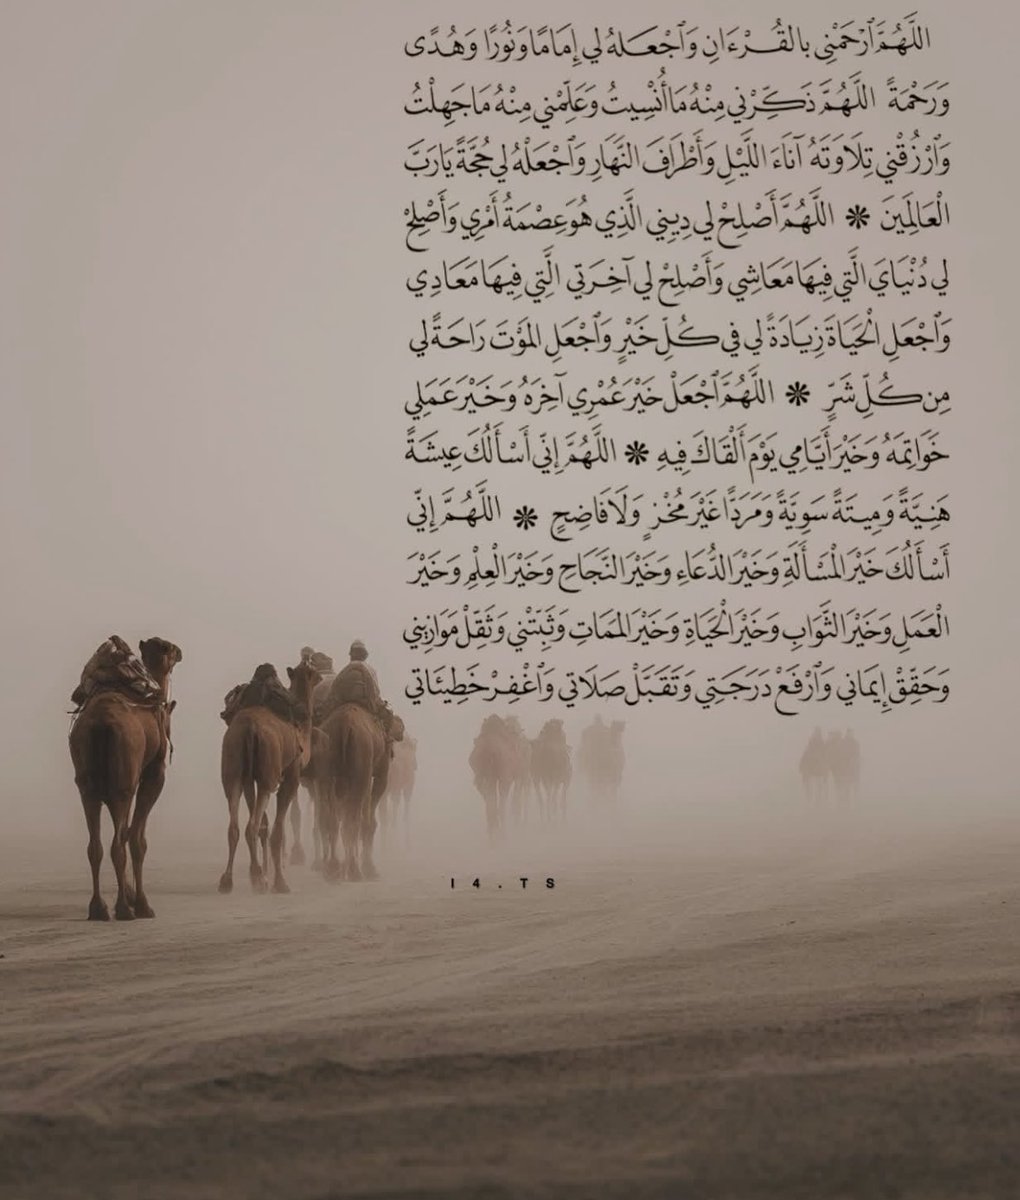 اللَّهُمَّ ٱرْحَمْنِي بالقُـــرْءَانِ وَٱجْعَـــلهُ لي إِمَامًا وَنُورًا وَهُــدًى
وَرَحْمَةً اللَّهُمَّ ذَكِّــرْني مِنْهُ مَا أُنْسِيتُ وَعَلِّمْني مِنْهُ مَا جَهِلْتُ
وَٱرْزُقْني تِلَاوَتَهُ آنَاءَ اللَّيْلِ وَأَطْرَافَ النَّهَارِ وَٱجْعَلْهُ لي حُجَّةً يَا رَبَّ
الْعَالَمِينَ ❋ اللَّهُمَّ أَصْلِحْ لي دِيــني الَّذِي هُوَ عِصْمَةُ أَمْرِي وَأَصْلِحْ
لي دُنْيَايَ الَّتي فِيهَا مَعَاشِي وَأَصْلِحْ لي آخِــرَتي الَّتِي فِيهَا مَعَـادِي
وَٱجْعَلِ الْحَيَـاةَ زِيَـادَةً لي في كُــلِّ خَيْرٍ وَٱجْعَلِ المَوْتَ رَاحَـةً لي
مِن كُــلِّ شَرٍّ ❋ اللَّهُمَّ ٱجْعَلْ خَيْرَ عُمْرِي آخِرَهُ وَخَيْرَ عَمَلِي
خَوَاتِمَهُ وَخَيْرَ أَيَّامِي يَوْمَ أَلْقَاكَ فِيهِ ❋ اللَّهُمَّ إِنِّي أَسْأَلُكَ عِيشَـةً
هَنِيَّةً وَمِيـتَةً سَوِيَّةً وَمَرَدًّا غَيْرَ مُخْزٍ وَلَا فَاضِحٍ ❋ اللَّهُـمَّ إِنِّي
أَسْأَلُكَ خَيْرَ الْمَسْأَلَةِ وَخَيْرَ الدُّعَاءِ وَخَيْرَ النَّجَاحِ وَخَيْرَ الْعِلْمِ وَخَيْرَ
الْعَمَلِ وَخَيْرَ الثَّوَابِ وَخَيْرَ الْحَيَاةِ وَخَيْرَ المَمَاتِ وَثَبِّتْني وَثَقِّلْ مَوَازِيني
وَحَقِّقْ إِيمَاني وَٱرْفَعْ دَرَجَــتِي وَتَقَبَّلْ صَلَاتي وَٱغْفِرْ خَطِيئَاتي
I4.TS